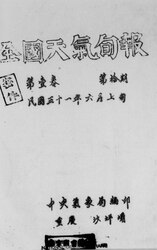 全國天氣旬報
密件
第壹卷
第拾期
民國三十一年六月上旬
中央氣象局編印
重慶
沙坪壩